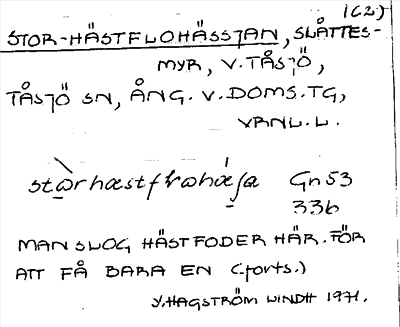 1(2)
STOR-HÄSTFLOHÄSSJAN, SLÅTTES-
MYR, V. TÅSJÖ,
TÅSJÖ SN, ÅNG. V. DOMS. TG,
VRNL. L.
Gn 53
336
MAN SLOG HÄSTFODER HÄR. FÖR
ATT FÅ BARA EN (forts.)
Y. HAGSTRÖM LINDH 1971.